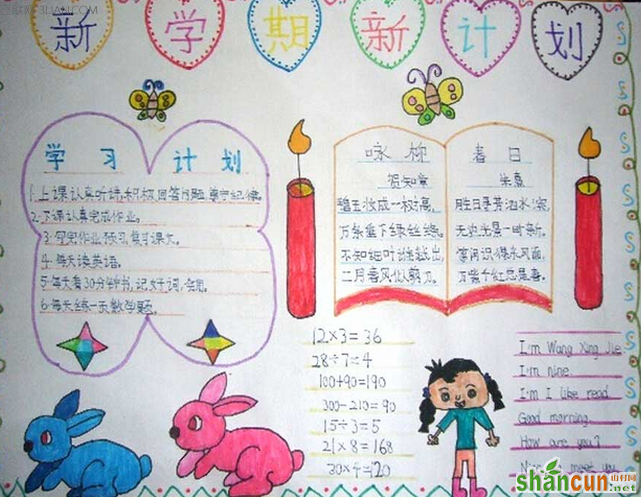 新学期新计划
学习计划
1.上课认真听讲,积极回答问题,遵守纪律。
2.下课认真完成作业。
3.写完作业预习,复习课文。
4.每天读英语。
5.每天看30分钟书,记好词,
6.每天练一页数学题。
咏柳
贺知章
碧玉妆成一树高,
万条垂下绿丝绦。
不知细叶谁裁出,
二月春风似剪刀。
春日
朱熹
胜日寻芳泗水滨,
无边光景一时新。
等闲识得东风面,
万紫千红总是春。
12×3=36
28÷7=4
100+90=190
300-210=90
15÷3=5
21×8=168
30×4=120
I'm Wang Xing Jie
I'm nine.
I'm I like read
Good morning.
How are you?
meet you
shancun
山村网
.net